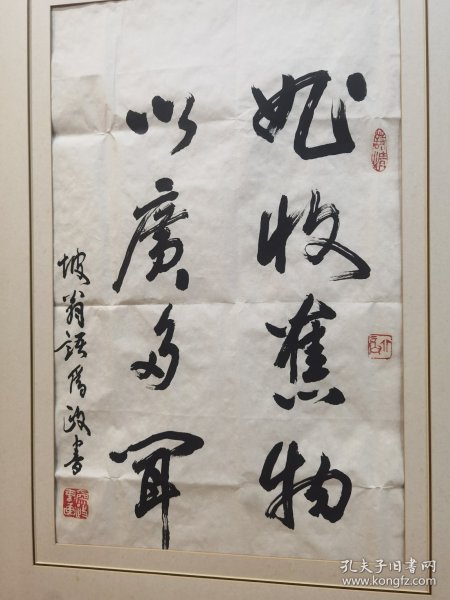 收舊物
以廣多聞
坡翁語為政書
孔夫子旧书网
www.kongfz.com